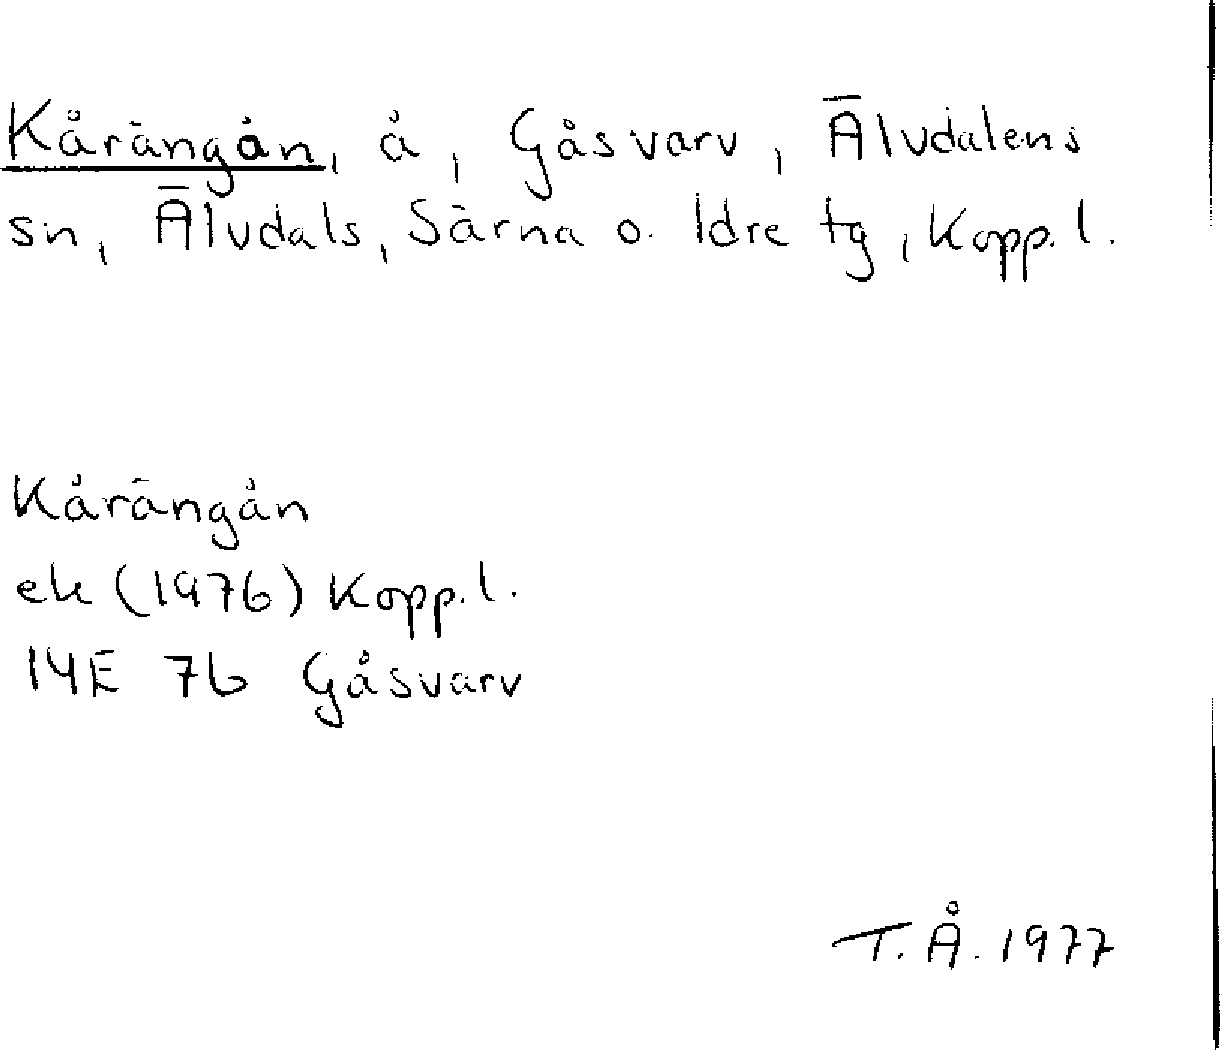 Kårängån, å, Gåsvarv, Älvdalens
sn, Älvdals, Särna o. Idre tg, Kopp. l.
Kårängån
ek (1976) Kopp. l.
14E 7b Gåsvarv
T. Å. 1977